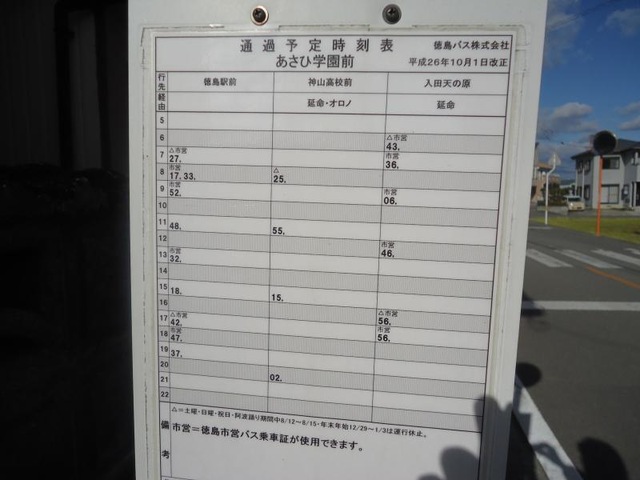 通過予定時刻表 徳島バス株式会社
あさひ学園前 平成26年10月1日改正
行先 徳島駅前 神山高校前 入田天の原
経由 延命・オロノ 延命
5
6 △市営 43.
7 △市営 27. 市営 36.
8 市営 17. 33. △ 25.
9 市営 52. 市営 06.
10
11 48. 55.
12
13 市営 32. 市営 46.
14
15 18. 15.
16
17 △市営 42. △市営 56.
18 市営 47. 市営 56.
19 37.
20
21 02.
22
備考
△=土曜・日曜・祝日・阿波踊り期間中8/12~8/15・年末年始12/29~1/3は運行休止。
市営=徳島市営バス乗車証が使用できます。